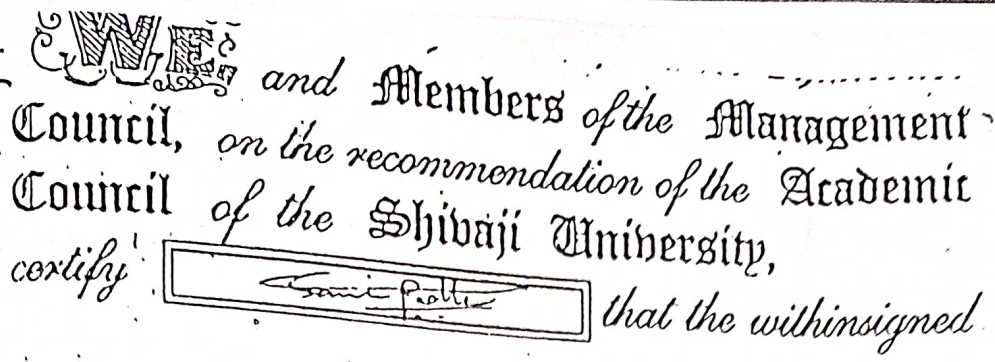 WE and Members of the Management
Council, on the recommendation of the Academic
Council of the Shivaji University,
certify that the withinsigned